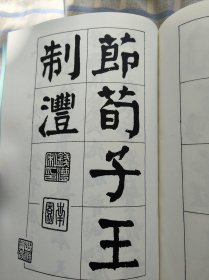 節荀子王
制灃